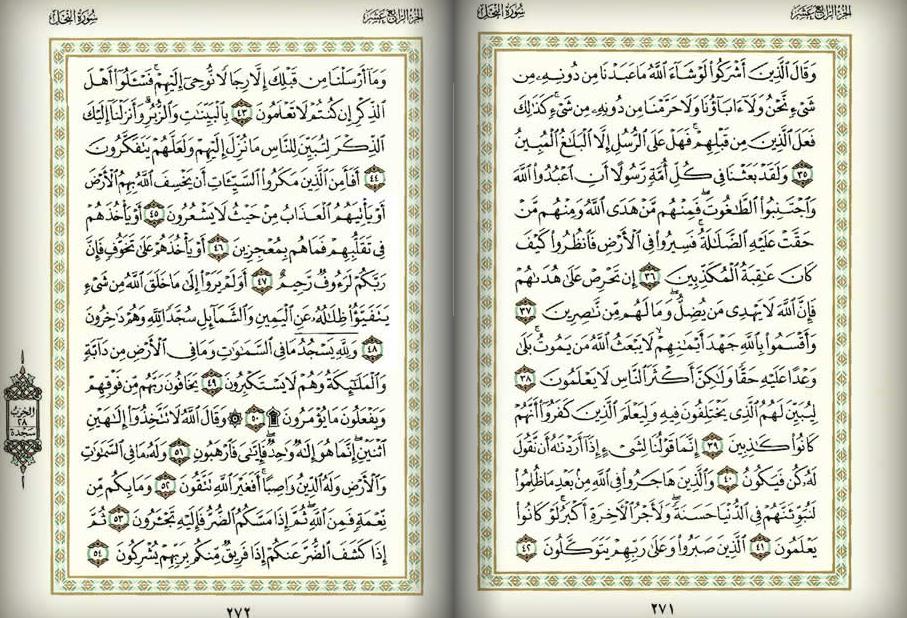 الجزء الرابع عشر
سورة النحل
وَقَالَ الَّذِينَ أَشْرَكُوا لَوْ شَاءَ اللَّهُ مَا عَبَدْنَا مِن دُونِهِ مِن
شَيْءٍ نَّحْنُ وَلَا ءَابَاؤُنَا وَلَا حَرَّمْنَا مِن دُونِهِ مِن شَيْءٍ كَذَٰلِكَ
فَعَلَ الَّذِينَ مِن قَبْلِهِمْ فَهَلْ عَلَى الرُّسُلِ إِلَّا الْبَلَاغُ الْمُبِينُ
٣٥ وَلَقَدْ بَعَثْنَا فِي كُلِّ أُمَّةٍ رَّسُولًا أَنِ اعْبُدُوا اللَّهَ
وَاجْتَنِبُوا الطَّاغُوتَ فَمِنْهُم مَّنْ هَدَى اللَّهُ وَمِنْهُم مَّنْ
حَقَّتْ عَلَيْهِ الضَّلَالَةُ فَسِيرُوا فِي الْأَرْضِ فَانظُرُوا كَيْفَ
كَانَ عَاقِبَةُ الْمُكَذِّبِينَ ٣٦ إِن تَحْرِصْ عَلَىٰ هُدَاهُمْ
فَإِنَّ اللَّهَ لَا يَهْدِي مَن يُضِلُّ وَمَا لَهُم مِّن نَّاصِرِينَ ٣٧
وَأَقْسَمُوا بِاللَّهِ جَهْدَ أَيْمَانِهِمْ لَا يَبْعَثُ اللَّهُ مَن يَمُوتُ بَلَىٰ
وَعْدًا عَلَيْهِ حَقًّا وَلَٰكِنَّ أَكْثَرَ النَّاسِ لَا يَعْلَمُونَ ٣٨
لِيُبَيِّنَ لَهُمُ الَّذِي يَخْتَلِفُونَ فِيهِ وَلِيَعْلَمَ الَّذِينَ كَفَرُوا أَنَّهُمْ
كَانُوا كَاذِبِينَ ٣٩ إِنَّمَا قَوْلُنَا لِشَيْءٍ إِذَا أَرَدْنَاهُ أَن نَّقُولَ
لَهُ كُن فَيَكُونُ ٤٠ وَالَّذِينَ هَاجَرُوا فِي اللَّهِ مِن بَعْدِ مَا ظُلِمُوا
لَنُبَوِّئَنَّهُمْ فِي الدُّنْيَا حَسَنَةً وَلَأَجْرُ الْآخِرَةِ أَكْبَرُ لَوْ كَانُوا
يَعْلَمُونَ ٤١ الَّذِينَ صَبَرُوا وَعَلَىٰ رَبِّهِمْ يَتَوَكَّلُونَ ٤٢
٢٧١
الجزء الرابع عشر
سورة النحل
وَمَا أَرْسَلْنَا مِن قَبْلِكَ إِلَّا رِجَالًا نُّوحِي إِلَيْهِمْ فَسْـَٔلُوا أَهْلَ
الذِّكْرِ إِن كُنتُمْ لَا تَعْلَمُونَ ٤٣ بِالْبَيِّنَاتِ وَالزُّبُرِ وَأَنزَلْنَا إِلَيْكَ
الذِّكْرَ لِتُبَيِّنَ لِلنَّاسِ مَا نُزِّلَ إِلَيْهِمْ وَلَعَلَّهُمْ يَتَفَكَّرُونَ
٤٤ أَفَأَمِنَ الَّذِينَ مَكَرُوا السَّيِّئَاتِ أَن يَخْسِفَ اللَّهُ بِهِمُ الْأَرْضَ
أَوْ يَأْتِيَهُمُ الْعَذَابُ مِنْ حَيْثُ لَا يَشْعُرُونَ ٤٥ أَوْ يَأْخُذَهُمْ
فِي تَقَلُّبِهِمْ فَمَا هُم بِمُعْجِزِينَ ٤٦ أَوْ يَأْخُذَهُمْ عَلَىٰ تَخَوُّفٍ فَإِنَّ
رَبَّكُمْ لَرَءُوفٌ رَّحِيمٌ ٤٧ أَوَلَمْ يَرَوْا إِلَىٰ مَا خَلَقَ اللَّهُ مِن شَيْءٍ
يَتَفَيَّؤُا ظِلَالُهُ عَنِ الْيَمِينِ وَالشَّمَائِلِ سُجَّدًا لِّلَّهِ وَهُمْ دَاخِرُونَ
٤٨ وَلِلَّهِ يَسْجُدُ مَا فِي السَّمَاوَاتِ وَمَا فِي الْأَرْضِ مِن دَابَّةٍ
وَالْمَلَائِكَةُ وَهُمْ لَا يَسْتَكْبِرُونَ ٤٩ يَخَافُونَ رَبَّهُم مِّن فَوْقِهِمْ
وَيَفْعَلُونَ مَا يُؤْمَرُونَ ۩ ٥٠ ۞ وَقَالَ اللَّهُ لَا تَتَّخِذُوا إِلَٰهَيْنِ
اثْنَيْنِ إِنَّمَا هُوَ إِلَٰهٌ وَاحِدٌ فَإِيَّايَ فَارْهَبُونِ ٥١ وَلَهُ مَا فِي السَّمَاوَاتِ
وَالْأَرْضِ وَلَهُ الدِّينُ وَاصِبًا أَفَغَيْرَ اللَّهِ تَتَّقُونَ ٥٢ وَمَا بِكُم مِّن
نِّعْمَةٍ فَمِنَ اللَّهِ ثُمَّ إِذَا مَسَّكُمُ الضُّرُّ فَإِلَيْهِ تَجْـَٔرُونَ ٥٣ ثُمَّ
إِذَا كَشَفَ الضُّرَّ عَنكُمْ إِذَا فَرِيقٌ مِّنكُم بِرَبِّهِمْ يُشْرِكُونَ ٥٤
الحزب
٢٨
سجدة
٢٧٢